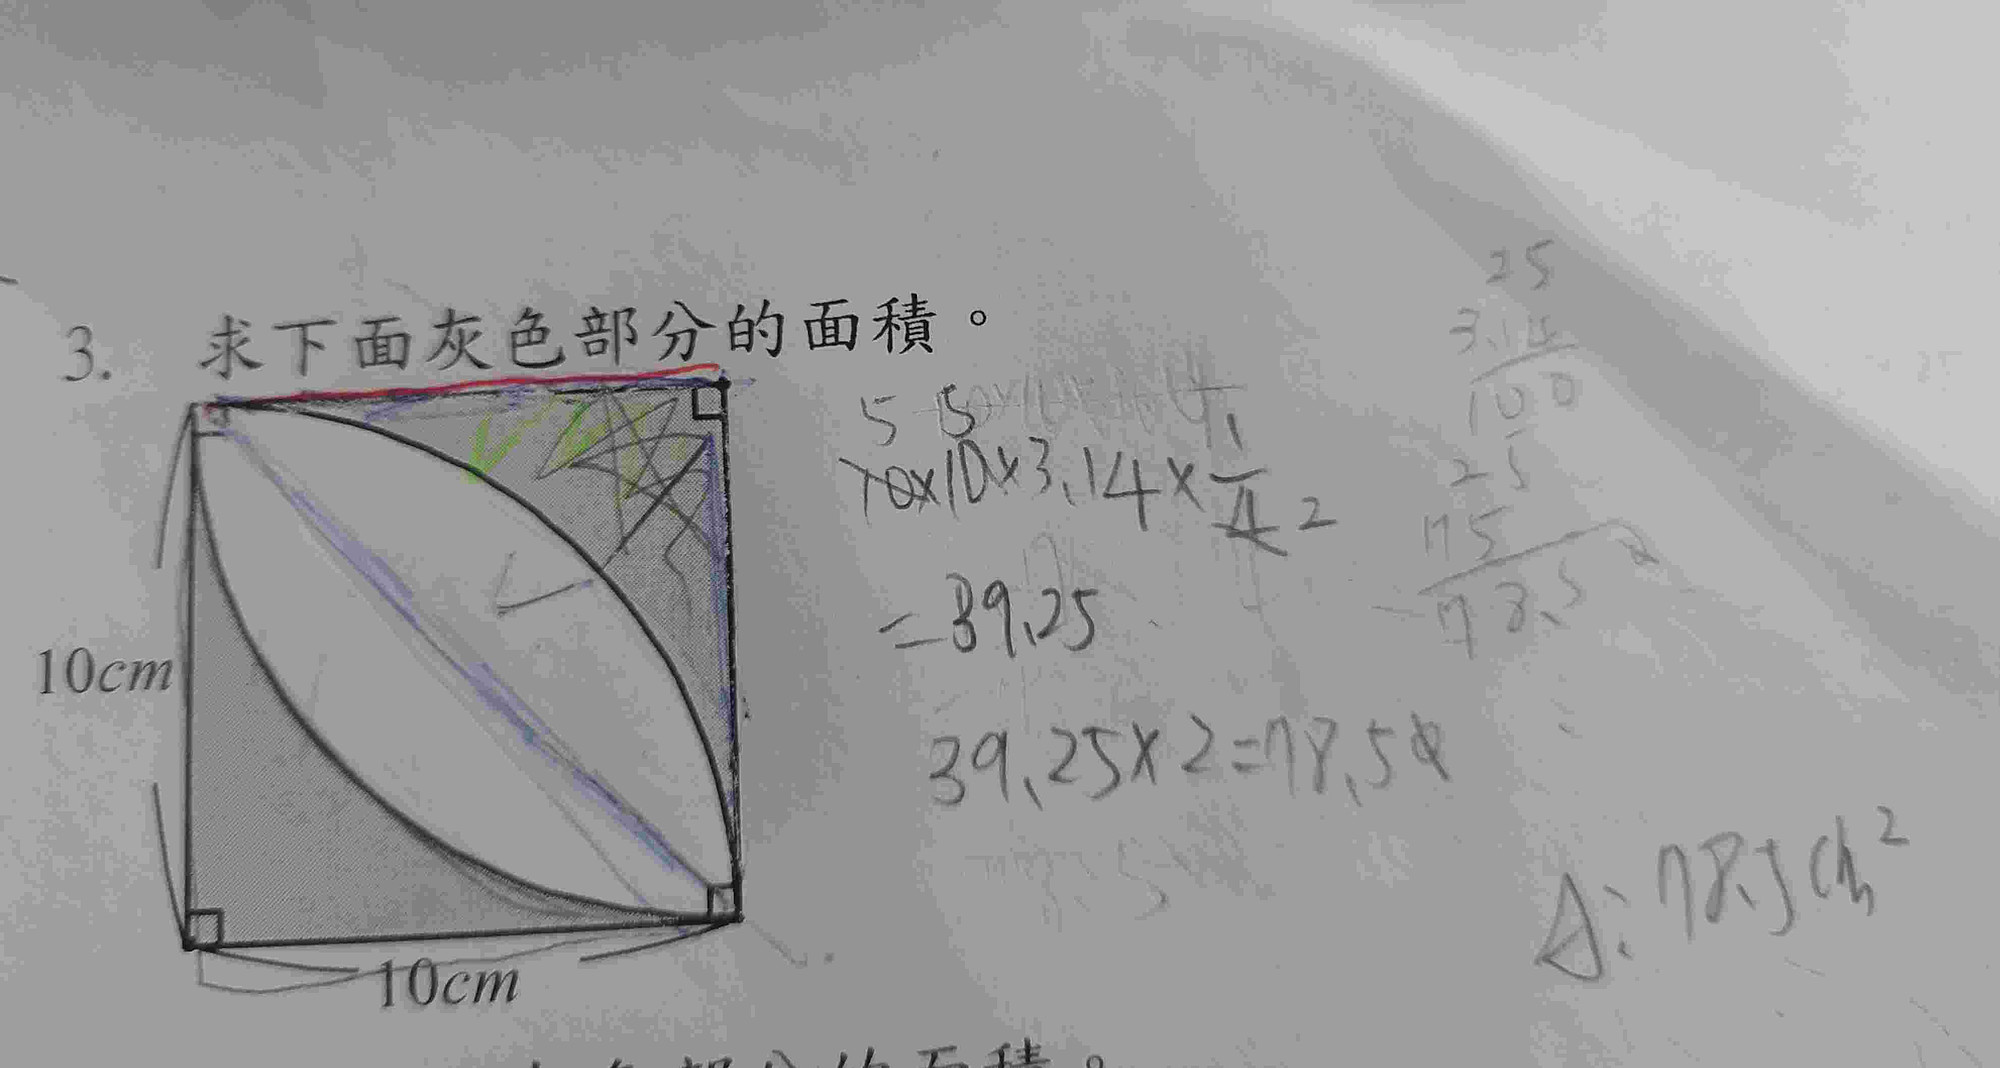 3. 求下面灰色部分的面積。
10cm
10cm
5 5
10×10×3.14×1/4 2
=39.25
39.25×2=78.5
25
3.14
100
25
75
78.5
A:78.5cm²